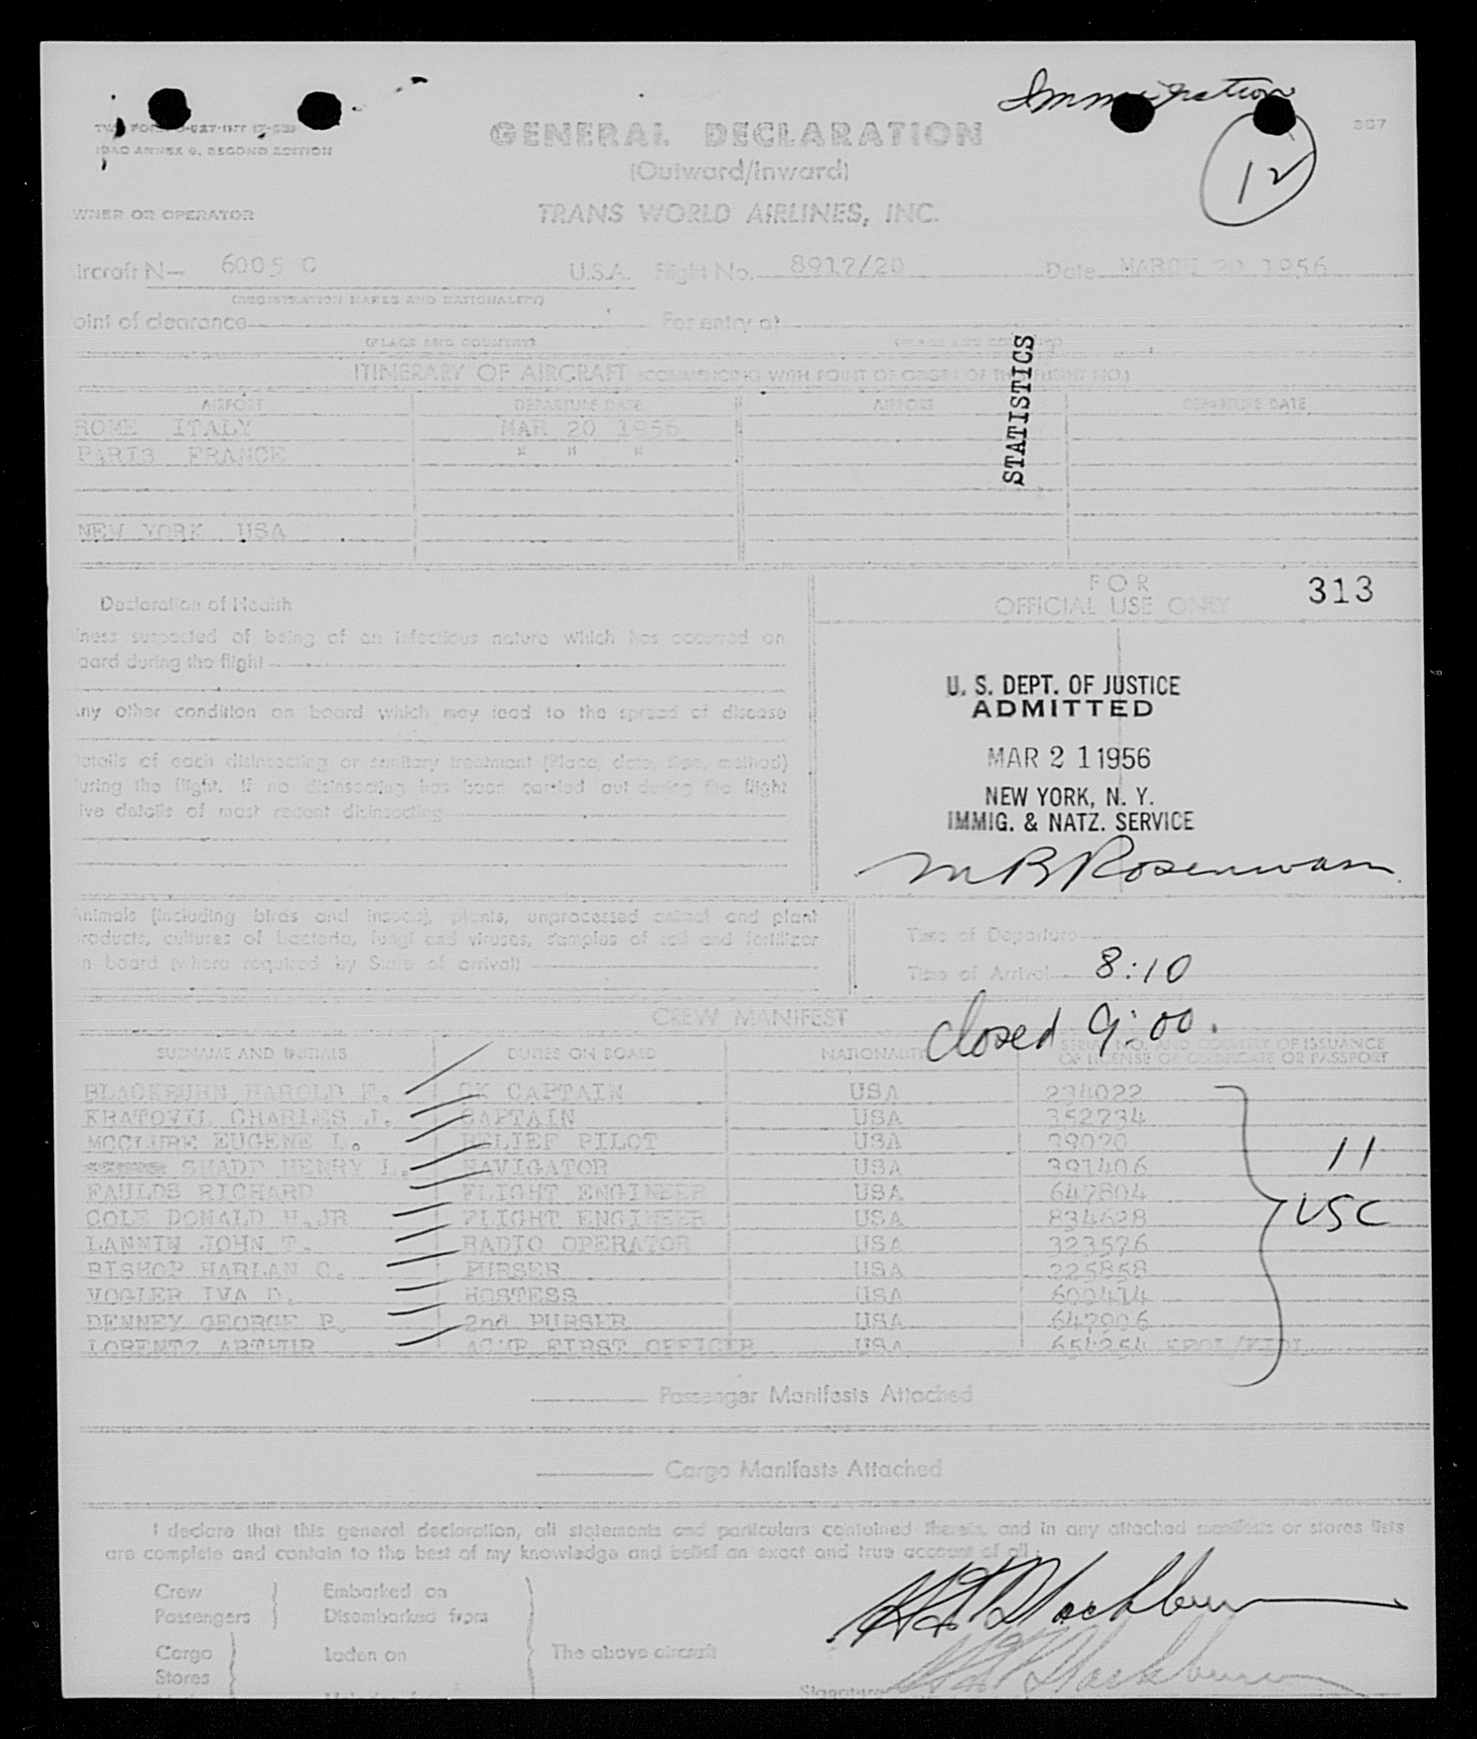 Immigration
12
ICAO ANNEX 9, SECOND EDITION
GENERAL DECLARATION
(Outward/Inward)
WNER OR OPERATOR
TRANS WORLD AIRLINES, INC.
ircraft N— 6005 C U.S.A. Flight No. 8912/20 Date MARCH 20 1956
(REGISTRATION MARKS AND NATIONALITY)
oint of clearance For entry at
(PLACE AND COUNTRY) (PLACE AND COUNTRY)
STATISTICS
ITINERARY OF AIRCRAFT (COMMENCING WITH POINT OF ORIGIN OF THIS FLIGHT NO.)
AIRPORT DEPARTURE DATE AIRPORT DEPARTURE DATE
ROME ITALY MAR 20 1956
PARIS FRANCE " " "
NEW YORK USA
FOR
OFFICIAL USE ONLY
313
Declaration of Health
lness suspected of being of an infectious nature which has occurred on
oard during the flight
ny other condition on board which may lead to the spread of disease
etails of each disinsecting or sanitary treatment (Place, date, time, method)
uring the flight. If no disinsecting has been carried out during the flight
ive details of most recent disinsecting
U. S. DEPT. OF JUSTICE
ADMITTED
MAR 21 1956
NEW YORK, N. Y.
IMMIG. & NATZ. SERVICE
Animals (including birds and insects), plants, unprocessed animal and plant
roducts, cultures of bacteria, fungi and viruses, samples of soil and fertilizer
n board (where required by State of arrival)
Time of Departure
Time of Arrival 8:10
closed 9:00.
CREW MANIFEST
SURNAME AND INITIALS DUTIES ON BOARD NATIONALITY SERIAL NO. AND COUNTRY OF ISSUANCE
OF LICENSE OR CERTIFICATE OR PASSPORT
BLACKBURN HAROLD F. CK CAPTAIN USA 234022
KRATOVIL CHARLES J. CAPTAIN USA 352734
MCCLURE EUGENE L. RELIEF PILOT USA 39020
SHADD HENRY L. NAVIGATOR USA 391406
FAULDS RICHARD FLIGHT ENGINEER USA 647804
COLE DONALD H.JR FLIGHT ENGINEER USA 834628
LANNIN JOHN T. RADIO OPERATOR USA 323576
BISHOP HARLAN C. PURSER USA 225858
VOGLER IVA D. HOSTESS USA 600414
DENNEY GEORGE P. 2nd PURSER USA 642906
LORENTZ ARTHUR FIRST OFFICER USA 654254
11
USC
Passenger Manifests Attached
Cargo Manifests Attached
I declare that this general declaration, all statements and particulars contained therein, and in any attached manifests or stores lists
are complete and contain to the best of my knowledge and belief an exact and true account of all:
Crew Embarked on
Passengers Disembarked from
Cargo Laden on The above aircraft
Stores
H F Blackburn
Signature H F Blackburn